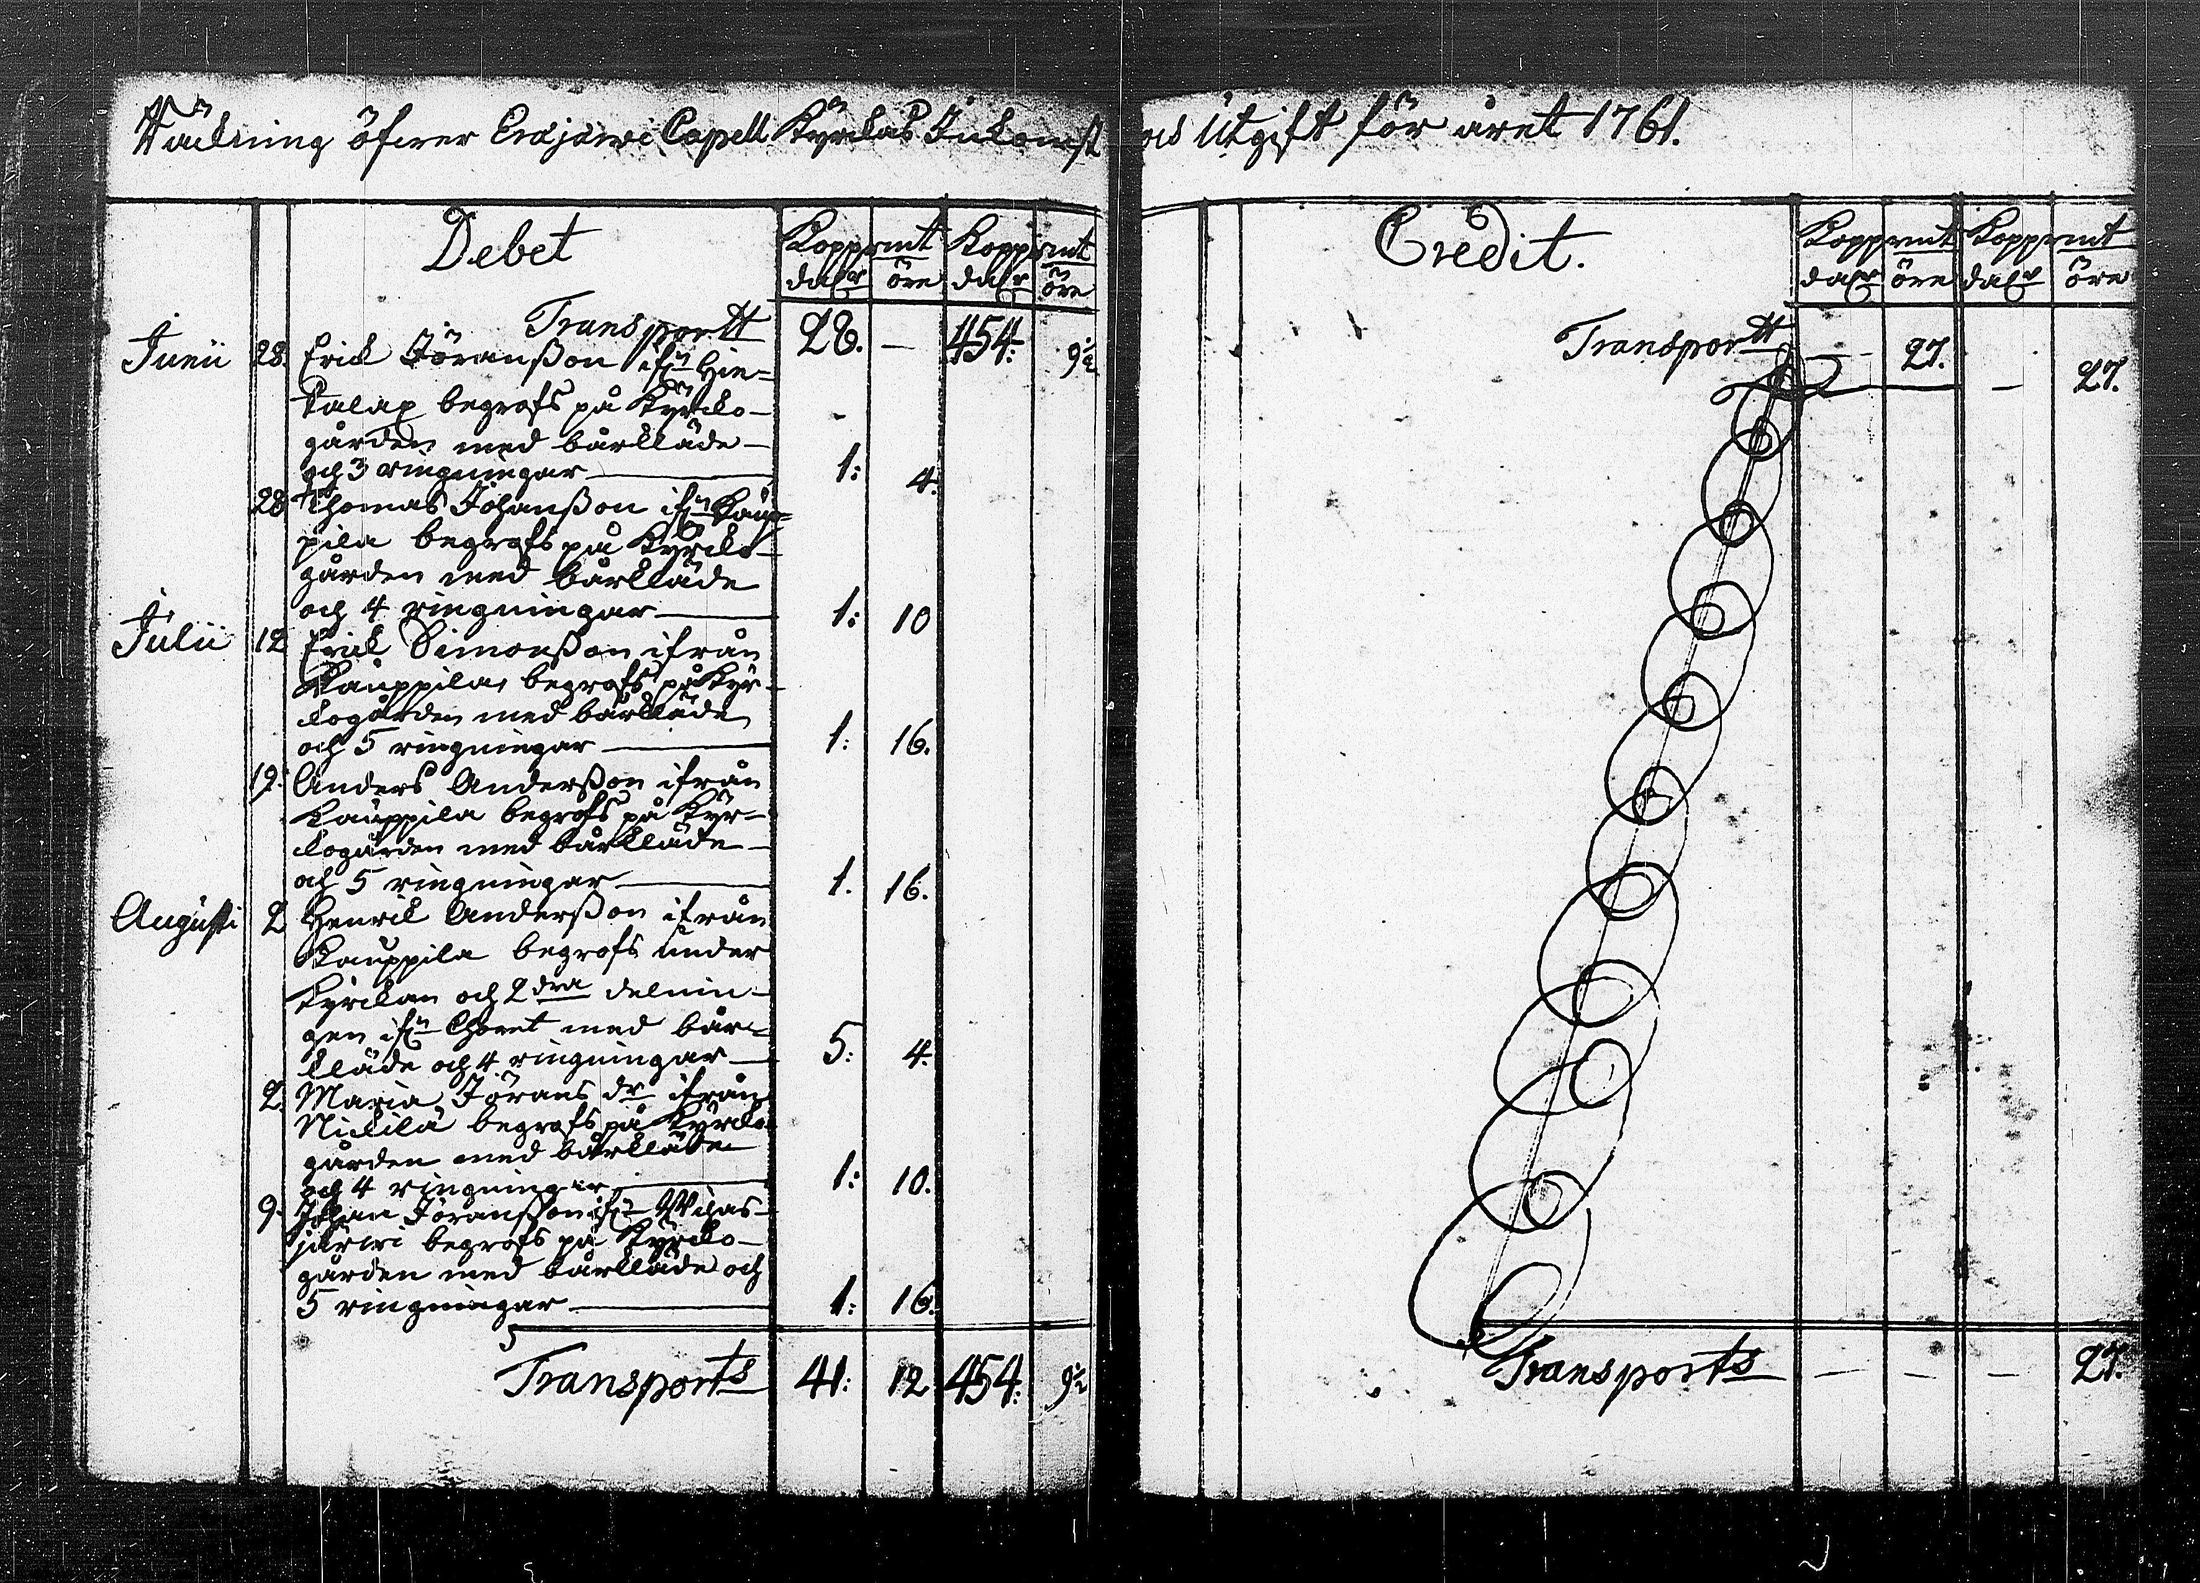 Räckning öfwer Eräjärwi Capell Kyrckas Inkomst och Utgifft för året 1761.
Debet
Koppmt Koppmt
dalr öre dalr öre
Transportt 28. — 454: 9½
Junii 28. Erick Jöranßon ifn Hin-
talax begrofs på Kyrcko-
gården med bårkläde
och 3 ringningar 1: 4:
28 Thomas Johanßon ifn Kaup-
pila begrofs på Kyrcko-
gården med bårkläde
och 4 ringningar 1: 10
Julii 12 Erick Simonßon ifrån
Kauppila begrofs på Kyr-
kogården med bårkläde
och 5 ringningar 1: 16.
19. Anders Anderßon ifrån
Kauppila begrofs på Kyr-
kogården med bårkläde
och 5 ringningar 1. 16.
Augusti 2 Henrik Anderßon ifrån
Kauppila begrofs under
Kyrckan och 2dra delnin-
gen ifn Choret med bår-
kläde och 4 ringningar 5: 4:
2. Maria Jörans dr ifrån
Nickilä begrofs på Kyrcko
gården med bårkläde
och 4 ringningar 1: 10.
9. Johan Jöranßon ifn Wihas-
järwi begrofs på Kyrcko-
gården med bårkläde och
5 ringningar 1: 16.
Transports 41: 12 454: 9½
Credit.
Koppmt Koppmt
dalr öre dalr öre
Transportt — 27. — 27.
Transports — — — 27.